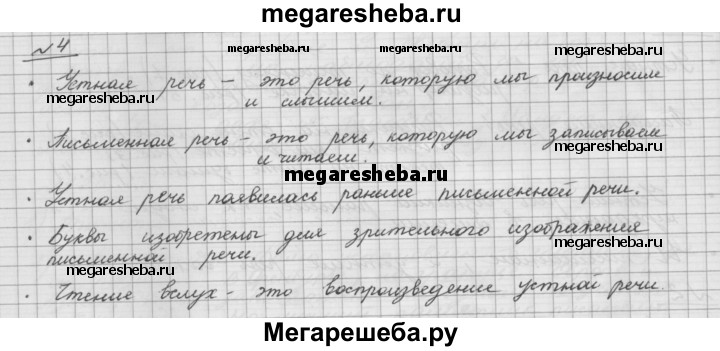 megaresheba.ru
№4
megaresheba.ru megaresheba.ru megaresheba.ru
• Устная речь – это речь, которую мы произносим
megaresheba.ru и слышим. megaresheba.ru
• Письменная речь – это речь, которую мы записываем
и читаем. megaresheba.ru
megaresheba.ru
• Устная речь появилась раньше письменной речи.
• Буквы изобретены для зрительного изображения
письменной речи. megaresheba.ru
megaresheba.ru megaresheba.ru
• Чтение вслух – это воспроизведение устной речи.
Мегарешеба.ру